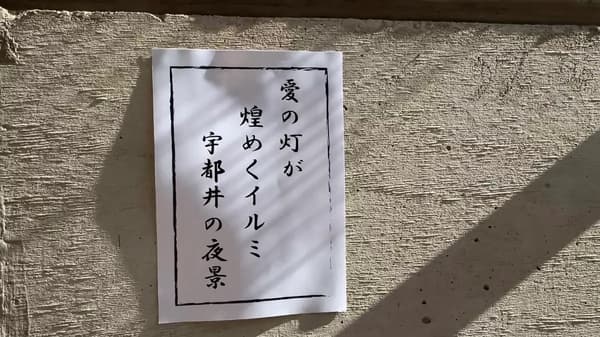 愛の灯が
煌めくイルミ
宇都井の夜景